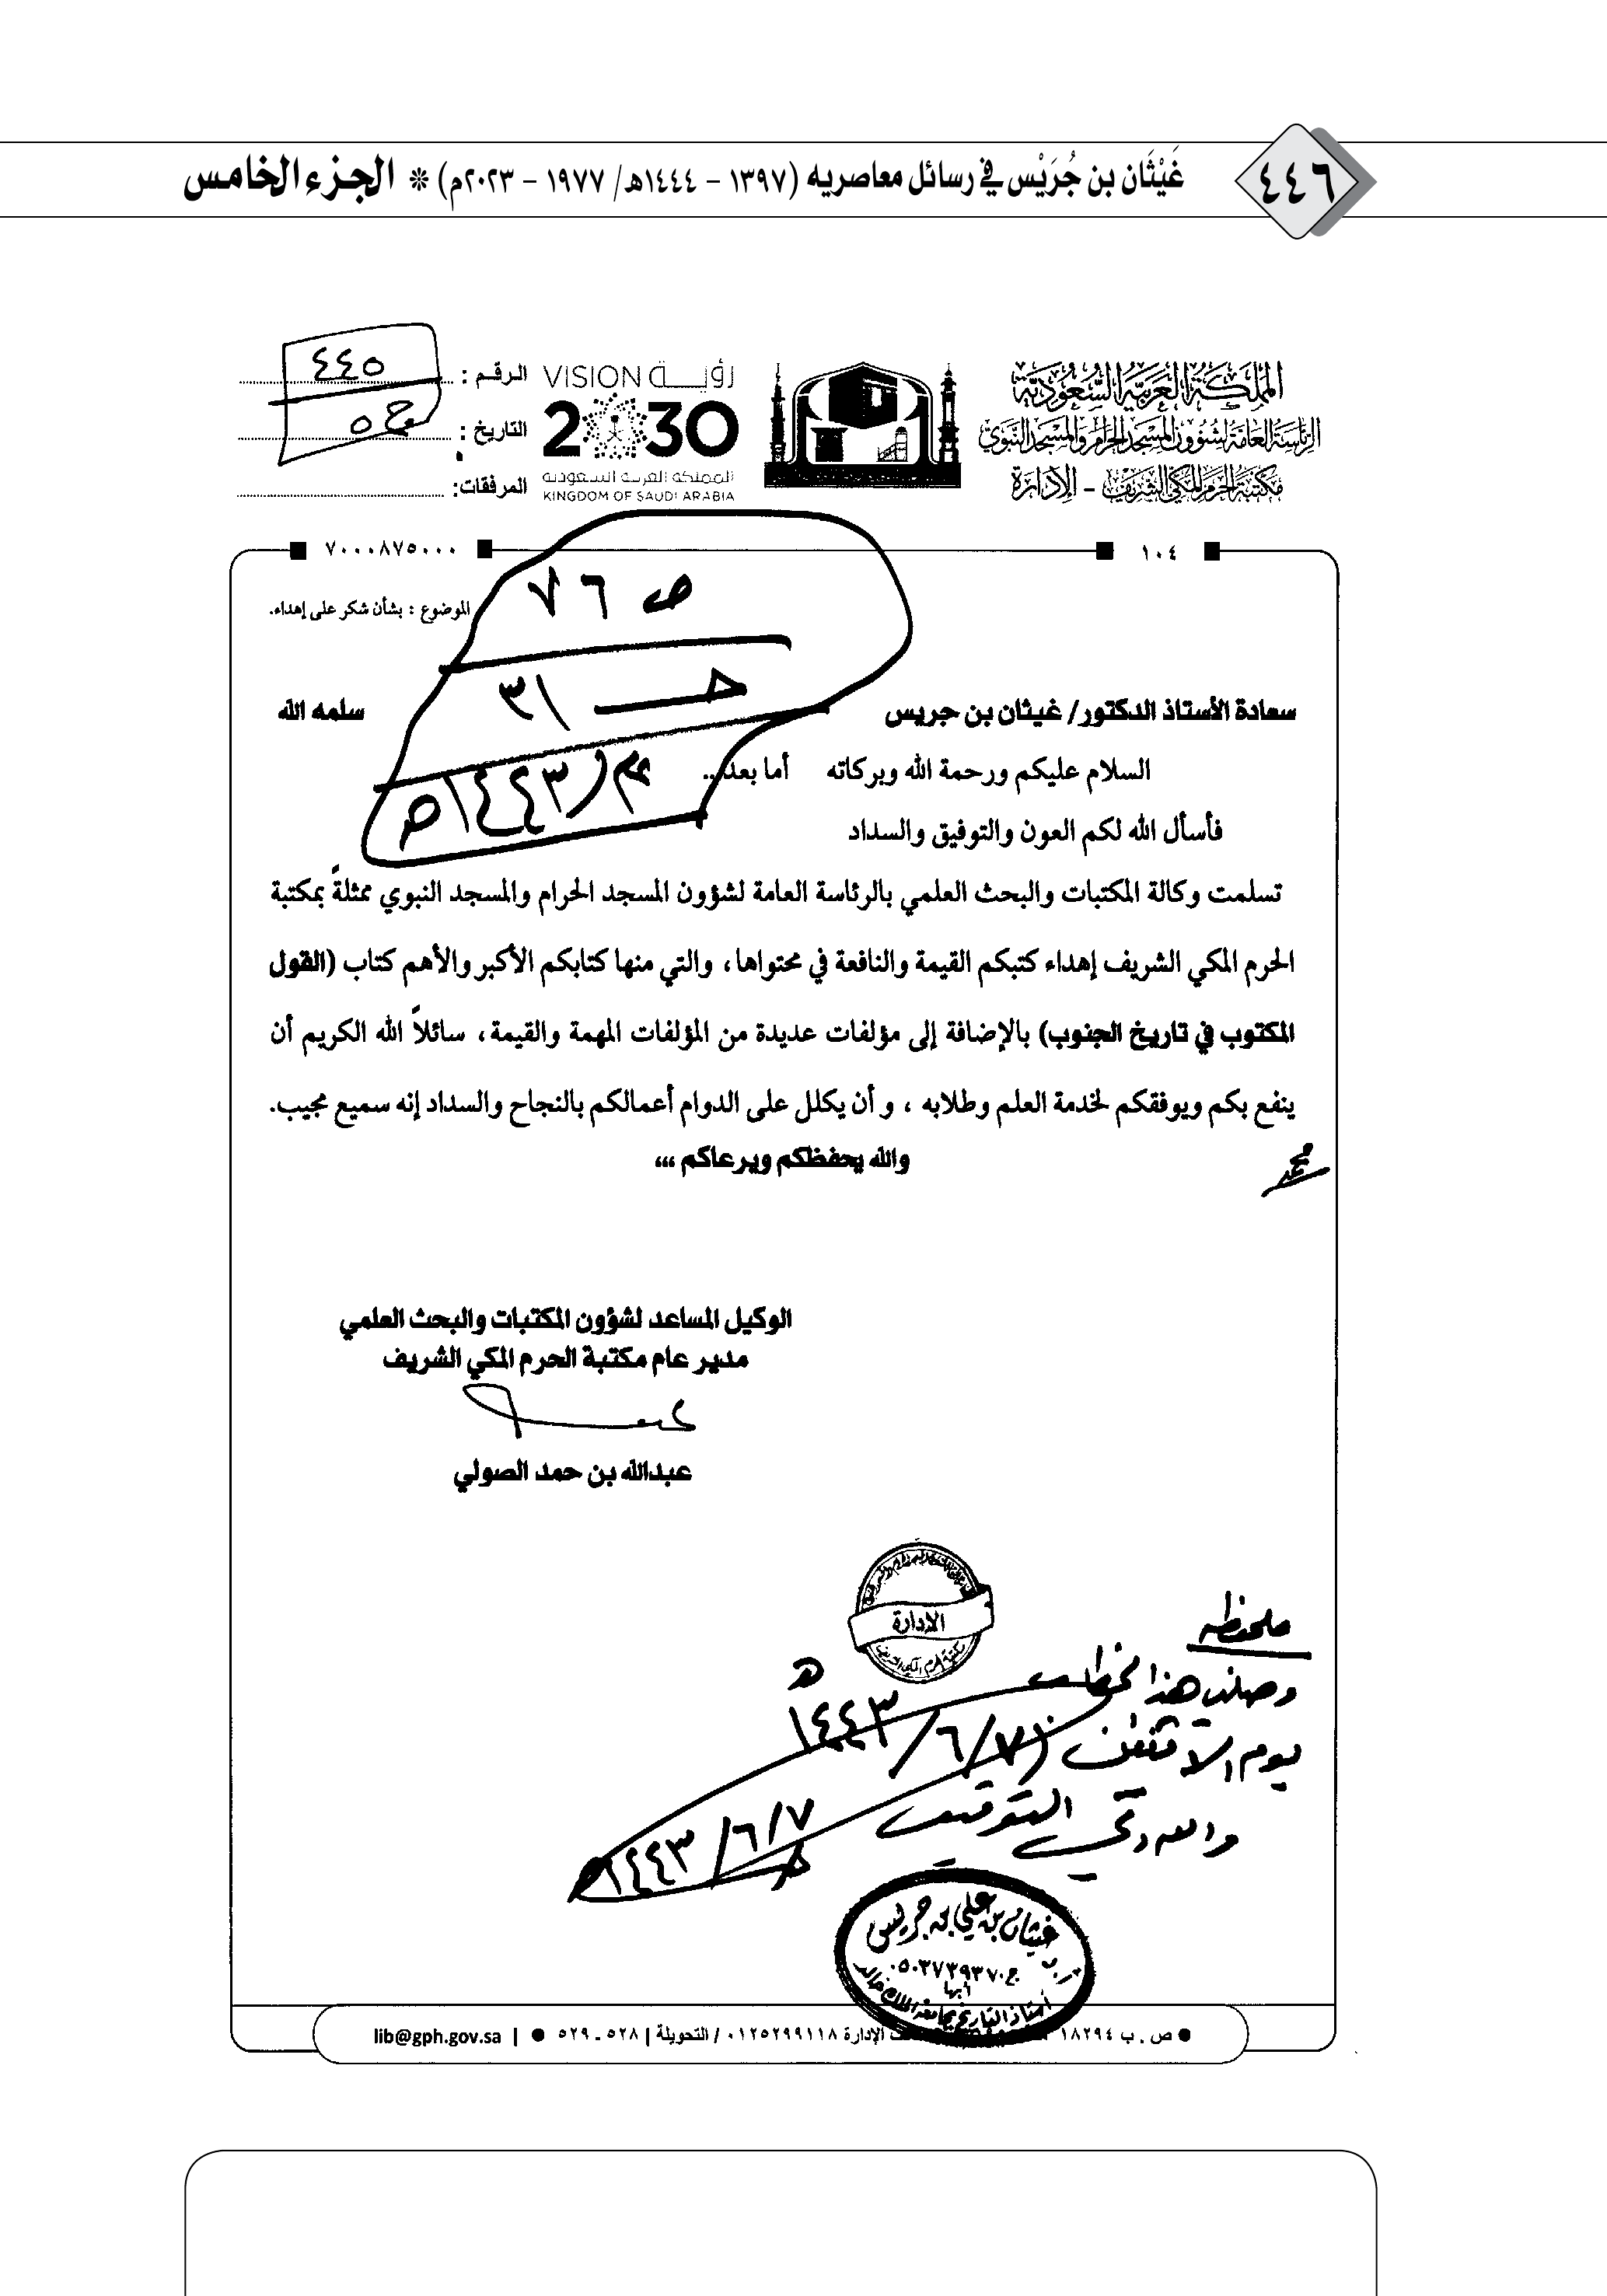 ٤٤٦
غَيْثَان بن جُرَيْس في رسائل معاصريه (١٣٩٧ - ١٤٤٤هـ/ ١٩٧٧ - ٢٠٢٣م) * الجزء الخامس
المملكة العربية السعودية
الرئاسة العامة لشؤون المسجد الحرام والمسجد النبوي
مكتبة الحرم المكي الشريف - الإدارة
رؤية VISION
2030
المملكة العربية السعودية
KINGDOM OF SAUDI ARABIA
الرقم : ٤٤٥
التاريخ : ج ٥
المرفقات:
١٠٤
٧٠٠٠٨٧٥٠٠٠
ص ٧٦
ح ٣١
١٤٤٣هـ
الموضوع : بشأن شكر على إهداء.
سعادة الأستاذ الدكتور/ غيثان بن جريس سلمه الله
السلام عليكم ورحمة الله وبركاته أما بعد..
فأسأل الله لكم العون والتوفيق والسداد
تسلمت وكالة المكتبات والبحث العلمي بالرئاسة العامة لشؤون المسجد الحرام والمسجد النبوي ممثلةً بمكتبة
الحرم المكي الشريف إهداء كتبكم القيمة والنافعة في محتواها، والتي منها كتابكم الأكبر والأهم كتاب (القول
المكتوب في تاريخ الجنوب) بالإضافة إلى مؤلفات عديدة من المؤلفات المهمة والقيمة، سائلاً الله الكريم أن
ينفع بكم ويوفقكم لخدمة العلم وطلابه ، و أن يكلل على الدوام أعمالكم بالنجاح والسداد إنه سميع مجيب.
والله يحفظكم ويرعاكم ،،،
الوكيل المساعد لشؤون المكتبات والبحث العلمي
مدير عام مكتبة الحرم المكي الشريف
عبدالله بن حمد الصولي
الإدارة
مكتبة الحرم المكي الشريف
ملحوظة
وصلني هذا الخطاب
يوم الاثنين (٧/٦/١٤٤٣هـ
والله ولي التوفيق
٧/٦/١٤٤٣هـ
غيثان بن علي بن جريس
ج٠٥٠٣٧٣٩٣٧٠
أبها
أستاذ التاريخ بجامعة الملك خالد
● ص . ب ١٨٢٩٤ الإدارة ٠١٢٥٢٩٩١١٨ / التحويلة | ٥٢٨ - ٥٢٩ ● | lib@gph.gov.sa